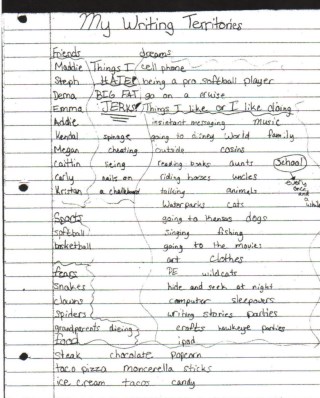 My Writing Territories
Friends dreams
Maddie Things I cell phone
Steph HATE! being a pro softball player
Dema BIG FAT go on a cruise
Emma JERKS! Things I like or I like doing
Addie instant messaging music
Kendal spinage going to disney world family
Megan cheating outside casins
Caitlin seing reading books aunts School
Carly nails on riding horses uncles every once and a while
Kristan a chalkboard talking animals
Waterparks cats
Sports going to kansas dogs
softball singing fishing
basketball going to the movies
art clothes
fears PE wildcats
Snakes hide and seek at night
clowns computer sleepovers
spiders writing stories parties
grandparents dieing crafts hawkeye parties
food ipod
steak chocolate popcorn
taco pizza moncerella sticks
ice cream tacos candy